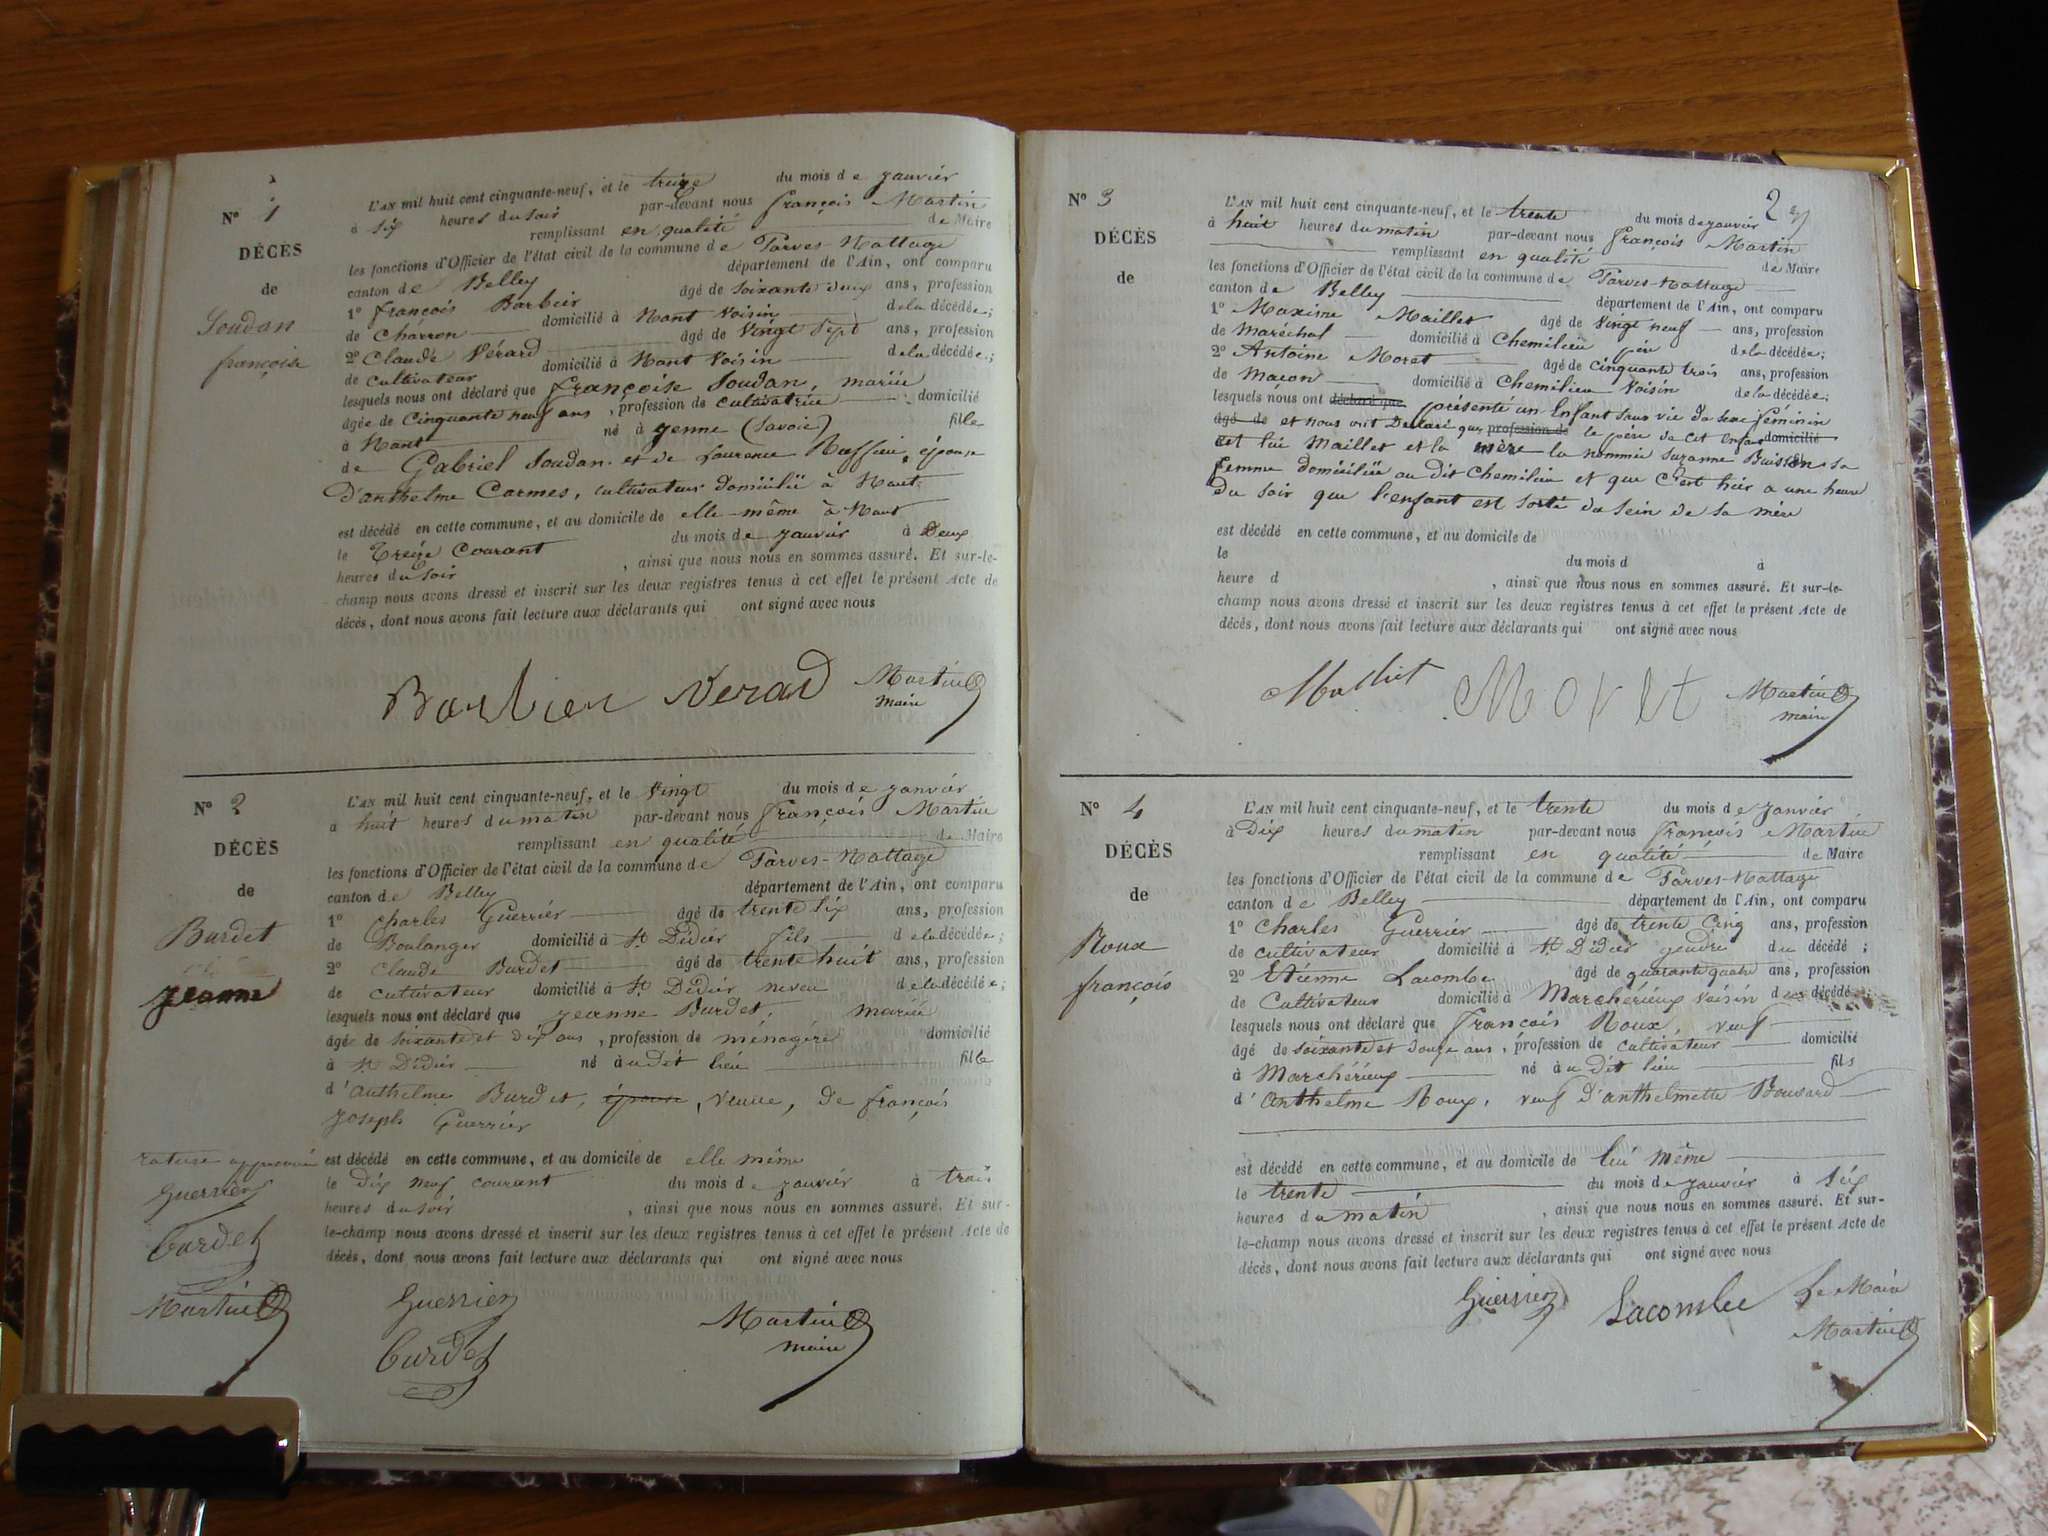 N° 1
DÉCÈS
de
Soudan
françoise
L'AN mil huit cent cinquante-neuf, et le treize du mois de janvier
à six heures du soir par-devant nous françois Martin
remplissant en qualité de Maire
les fonctions d'Officier de l'état civil de la commune de Parves-Nattage
canton de Belley département de l'Ain, ont comparu
1° françois Barbier âgé de soixante deux ans, profession
de charron domicilié à Nant voisin de la décédée;
2° Claude Vérard âgé de vingt sept ans, profession
de cultivateur domicilié à Nant voisin de la décédée;
lesquels nous ont déclaré que françoise Soudan, mariée
âgée de cinquante neuf ans, profession de cultivatrice domicilié
à Nant né à yenne (Savoie) fille
de Gabriel Soudan et de Laurence Ruffieu, épouse
D'anthelme Carmes, cultivateur domicilié à Nant
est décédé en cette commune, et au domicile de elle-même à Nant
le Treize courant du mois de janvier à Deux
heures du soir, ainsi que nous nous en sommes assuré. Et sur-le-
champ nous avons dressé et inscrit sur les deux registres tenus à cet effet le présent Acte de
décès, dont nous avons fait lecture aux déclarants qui ont signé avec nous
Barbier Verard Martin
maire
N° 2
DÉCÈS
de
Burdet
jeanne
L'AN mil huit cent cinquante-neuf, et le vingt du mois de janvier
à huit heures du matin par-devant nous françois Martin
remplissant en qualité de Maire
les fonctions d'Officier de l'état civil de la commune de Parves-Nattage
canton de Belley département de l'Ain, ont comparu
1° Charles Guerrier âgé de trente six ans, profession
de Boulanger domicilié à St Didier fils de la décédée;
2° Claude Burdet âgé de trente huit ans, profession
de cultivateur domicilié à St Didier neveu de la décédée;
lesquels nous ont déclaré que jeanne Burdet, mariée
âgé de soixante et dix ans, profession de ménagère domicilié
à St Didier né au dit lieu fille
d'anthelme Burdet, épouse, veuve, de françois
joseph Guerrier
est décédé en cette commune, et au domicile de elle même
le dix neuf courant du mois de janvier à trois
heures du soir, ainsi que nous nous en sommes assuré. Et sur-
le-champ nous avons dressé et inscrit sur les deux registres tenus à cet effet le présent Acte de
décès, dont nous avons fait lecture aux déclarants qui ont signé avec nous
rature approuvée
Guerrier
Burdet
Martin
Guerrier
Burdet
Martin
maire
2
N° 3
DÉCÈS
de
L'AN mil huit cent cinquante-neuf, et le trente du mois de janvier
à huit heures du matin par-devant nous françois Martin
remplissant en qualité de Maire
les fonctions d'Officier de l'état civil de la commune de Parves-Nattage
canton de Belley département de l'Ain, ont comparu
1° Maxime Maillet âgé de vingt neuf ans, profession
de maréchal domicilié à Chemilieu père de la décédée;
2° Antoine Moret âgé de cinquante trois ans, profession
de maçon domicilié à Chemilieu voisin de la décédée;
lesquels nous ont déclaré que présenté un Enfant sans vie du sexe féminin
âgé de et nous ont Déclaré que profession de le père de cet enfant domicilié
est lui Maillet et la mère la nommée Suzanne Buisson sa
femme domiciliée au dit Chemilieu et que c'est hier a une heure
Du soir que l'enfant est sorti du sein de sa mère
est décédé en cette commune, et au domicile de
le du mois d à
heure d, ainsi que nous nous en sommes assuré. Et sur-le-
champ nous avons dressé et inscrit sur les deux registres tenus à cet effet le présent Acte de
décès, dont nous avons fait lecture aux déclarants qui ont signé avec nous
Maillet Moret Martin
maire
N° 4
DÉCÈS
de
Roux
françois
L'AN mil huit cent cinquante-neuf, et le trente du mois de janvier
à Dix heures du matin par-devant nous françois Martin
remplissant en qualité de Maire
les fonctions d'Officier de l'état civil de la commune de Parves-Nattage
canton de Belley département de l'Ain, ont comparu
1° Charles Guerrier âgé de trente cinq ans, profession
de cultivateur domicilié à St Didier gendre du décédé;
2° Etienne Lacombe âgé de quarante quatre ans, profession
de Cultivateur domicilié à Marchérieux voisin du décédé
lesquels nous ont déclaré que françois Roux, veuf
âgé de soixante et douze ans, profession de cultivateur domicilié
à Marchérieux né au dit lieu fils
d'anthelme Roux, veuf D'anthelmette Bouvard
est décédé en cette commune, et au domicile de lui même
le trente du mois de janvier à six
heures du matin, ainsi que nous nous en sommes assuré. Et sur-
le-champ nous avons dressé et inscrit sur les deux registres tenus à cet effet le présent Acte de
décès, dont nous avons fait lecture aux déclarants qui ont signé avec nous
Guerrier Lacombe Le Maire
Martin